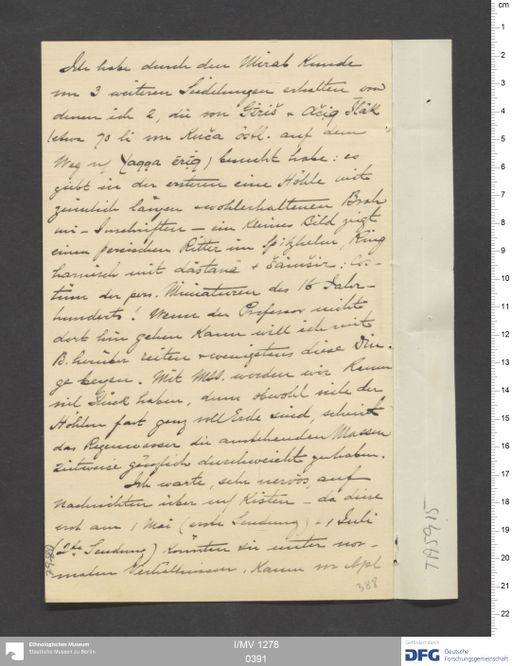 Ich habe durch den Mirab Kunde
von 3 weiteren Siedelungen erhalten von
denen ich 2, die von Giriš + Ačiq Iläk
(etwa 70 li von Kuča östl. auf dem
Weg n/ Yaqqa ériq) besucht habe: es
giebt in der ersteren eine Höhle mit
ziemlich langen + wohlerhaltenen Brah
mi-Inschriften – ein kleines Bild zeigt
einen persischen Ritter im Spitzhelm, Ring
harnisch mit dästana + šämšir: Cos-
tüm der pers. Miniaturen des 16 Jahr-
hunderts! Wenn der Professor nicht
dort hin gehen kann will ich mit
B. hinüber reiten + wenigstens diese Din-
ge bergen. Mit MSS. werden wir kaum
viel Glück haben, denn obwohl viele der
Höhlen fast ganz voll Erde sind, scheint
das Regenwasser die anstehenden Massen
zeitweise gänzlich durchweicht zu haben.
Ich warte, sehr nervös auf
Nachrichten über m/ Kisten – da diese
erst am 1 Mai (erste Sendung) + 1 Juli
(2te Sendung) könnten sie unter nor-
malen Verhältnissen, kaum vor Apl
388
Ethnologisches Museum
Staatliche Museen zu Berlin
I/MV 1278
0391
Gefördert durch
DFG Deutsche
Forschungsgemeinschaft
cm
1
2
3
4
5
6
7
8
9
10
11
12
13
14
15
16
17
18
19
20
21
22